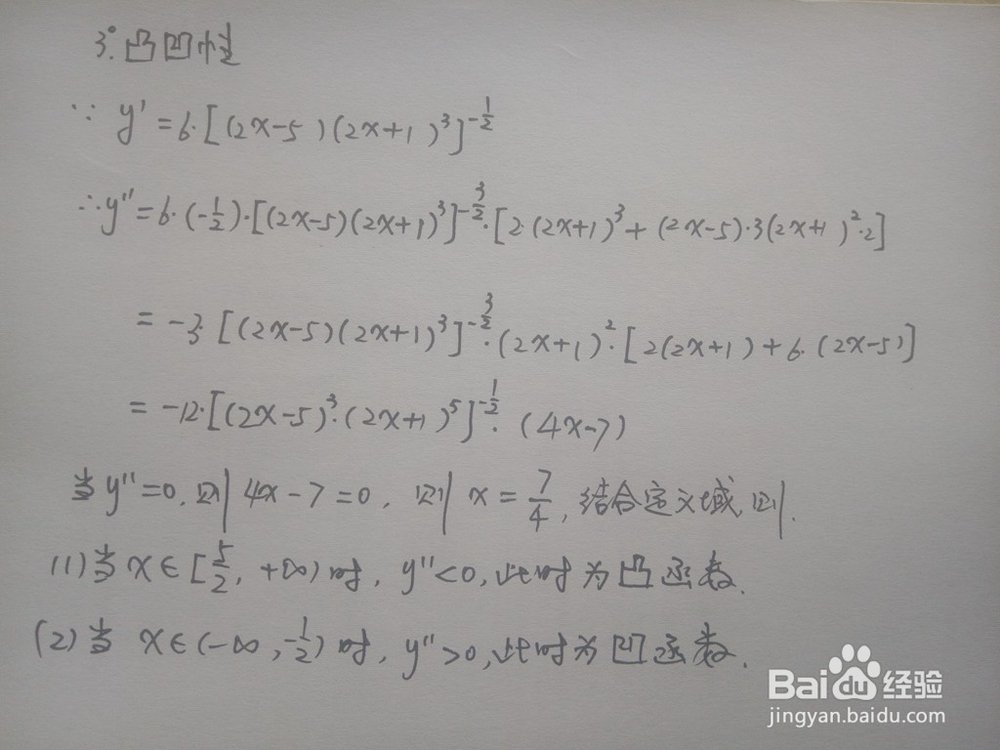 3°.凸凹性
∵ y'=6·[(2x-5)(2x+1)³]^{-1/2}
∴y''=6·(-1/2)·[(2x-5)(2x+1)³]^{-3/2}·[2·(2x+1)³+(2x-5)·3(2x+1)²·2]
=-3·[(2x-5)(2x+1)³]^{-3/2}·(2x+1)²·[2(2x+1)+6·(2x-5)]
=-12·[(2x-5)³·(2x+1)⁵]^{-1/2}·(4x-7)
当y''=0,则4x-7=0,则x=7/4,结合定义域,则.
(1)当x∈[5/2,+∞)时,y''<0,此时为凸函数.
(2)当 x∈(-∞,-1/2)时,y''>0,此时为凹函数.
Baidu经验
jingyan.baidu.com